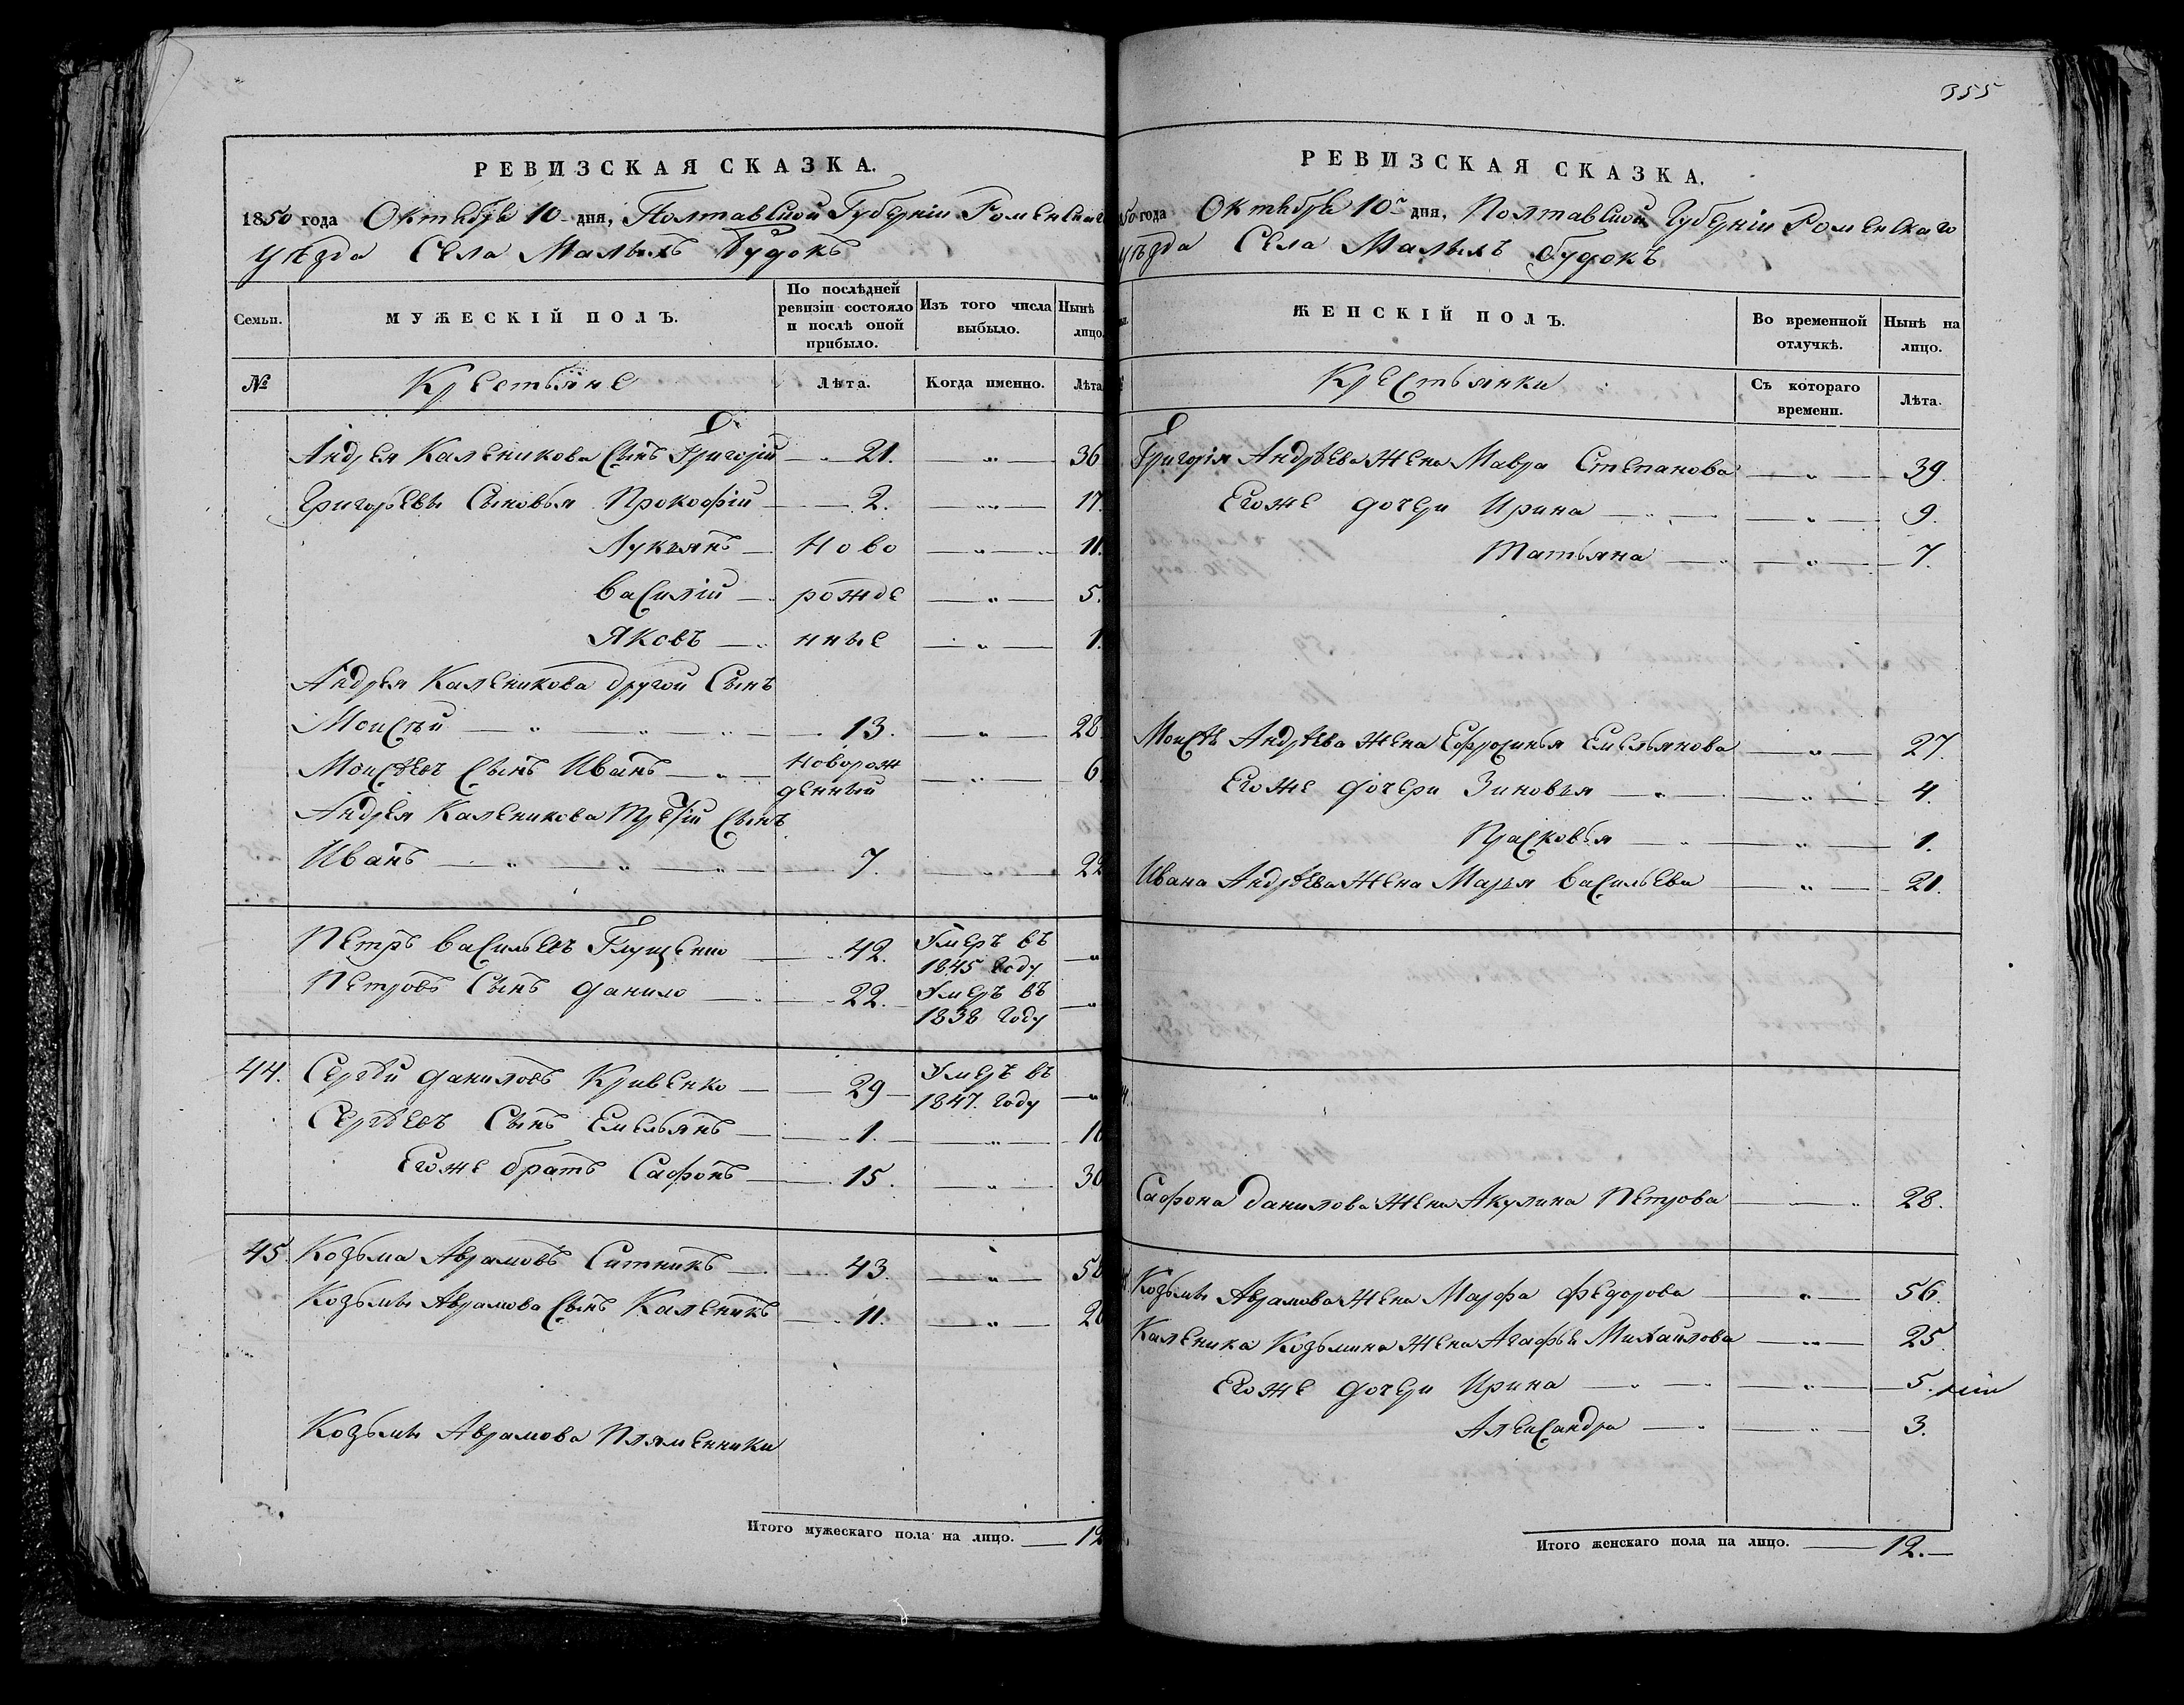 РЕВИЗСКАЯ СКАЗКА.
1850 года Октября 10 дня, Полтавской Губерніи Роменскаго
уѣзда Села Малыхъ Будокъ
Семьи.
МУЖЕСКІЙ ПОЛЪ.
По послѣдней ревизіи состояло и послѣ оной прибыло.
Изъ того числа выбыло.
Нынѣ лицо.
№
Крестьяне
Лѣта.
Когда именно.
Лѣта
Андрея Каленикова сынъ Григорій — 21. — „ — 36
Григорьевы Сыновья Прокофій — 2. — „ — 17.
Лукьянъ — Ново — „ — 11.
Василій — рожде — „ — 5.
Яковъ — нные — „ — 1.
Андрея Каленикова другой Сынъ
Моисѣй — „ — „ — 13. — „ — 28
Моисѣевъ Сынъ Иванъ — „ — Новорож
денный — „ — 6
Андрея Каленикова третій Сынъ
Иванъ — „ — „ — 7. — „ — 22
Петръ Васильевъ Глущенко — 42. Умеръ въ
1845 году — „
Петровъ Сынъ Данило — 22. Умеръ въ
1838 году — „
44. Сергѣй Даниловъ Кривенко — 29 — Умеръ въ
1847. году — „
Сергѣевъ Сынъ Емельянъ — 1. — „ — 16
Егоже братъ Сафонъ — 15. — „ — 30
45. Козьма Аврамовъ Ситникъ — 43. — „ — 58
Козьмы Аврамова Сынъ Каленикъ — 11. — „ — 26
Козьмы Аврамова племенники
Итого мужескаго пола на лицо. — 12
355
РЕВИЗСКАЯ СКАЗКА.
850 года Октября 10 дня, Полтавской Губерніи Роменскаго
уѣзда Села Малыхъ Будокъ
ЖЕНСКІЙ ПОЛЪ.
Во временной отлучкѣ.
Нынѣ на лицо.
Крестьянки
Съ котораго времени.
Лѣта.
Григорія Андрѣева жена Мавра Степанова — „ — 39.
Егоже дочери Ирина — „ — 9.
Татьяна — „ — 7.
Моисѣя Андрѣева жена Ефросинья Емельянова — „ — 27.
Егоже дочери Зиновья — „ — 4.
Прасковья — „ — 1.
Ивана Андрѣева жена Марья Васильева — „ — 21.
Сафона Данилова жена Акулина Петрова — „ 28.
Козьмы Аврамова жена Марфа Федорова — „ — 56.
Каленика Козьмина жена Агафья Михайлова — „ — 25
Егоже дочери Ирина — „ — 5.
Александра — „ — 3.
Итого женскаго пола на лицо. — 12. —